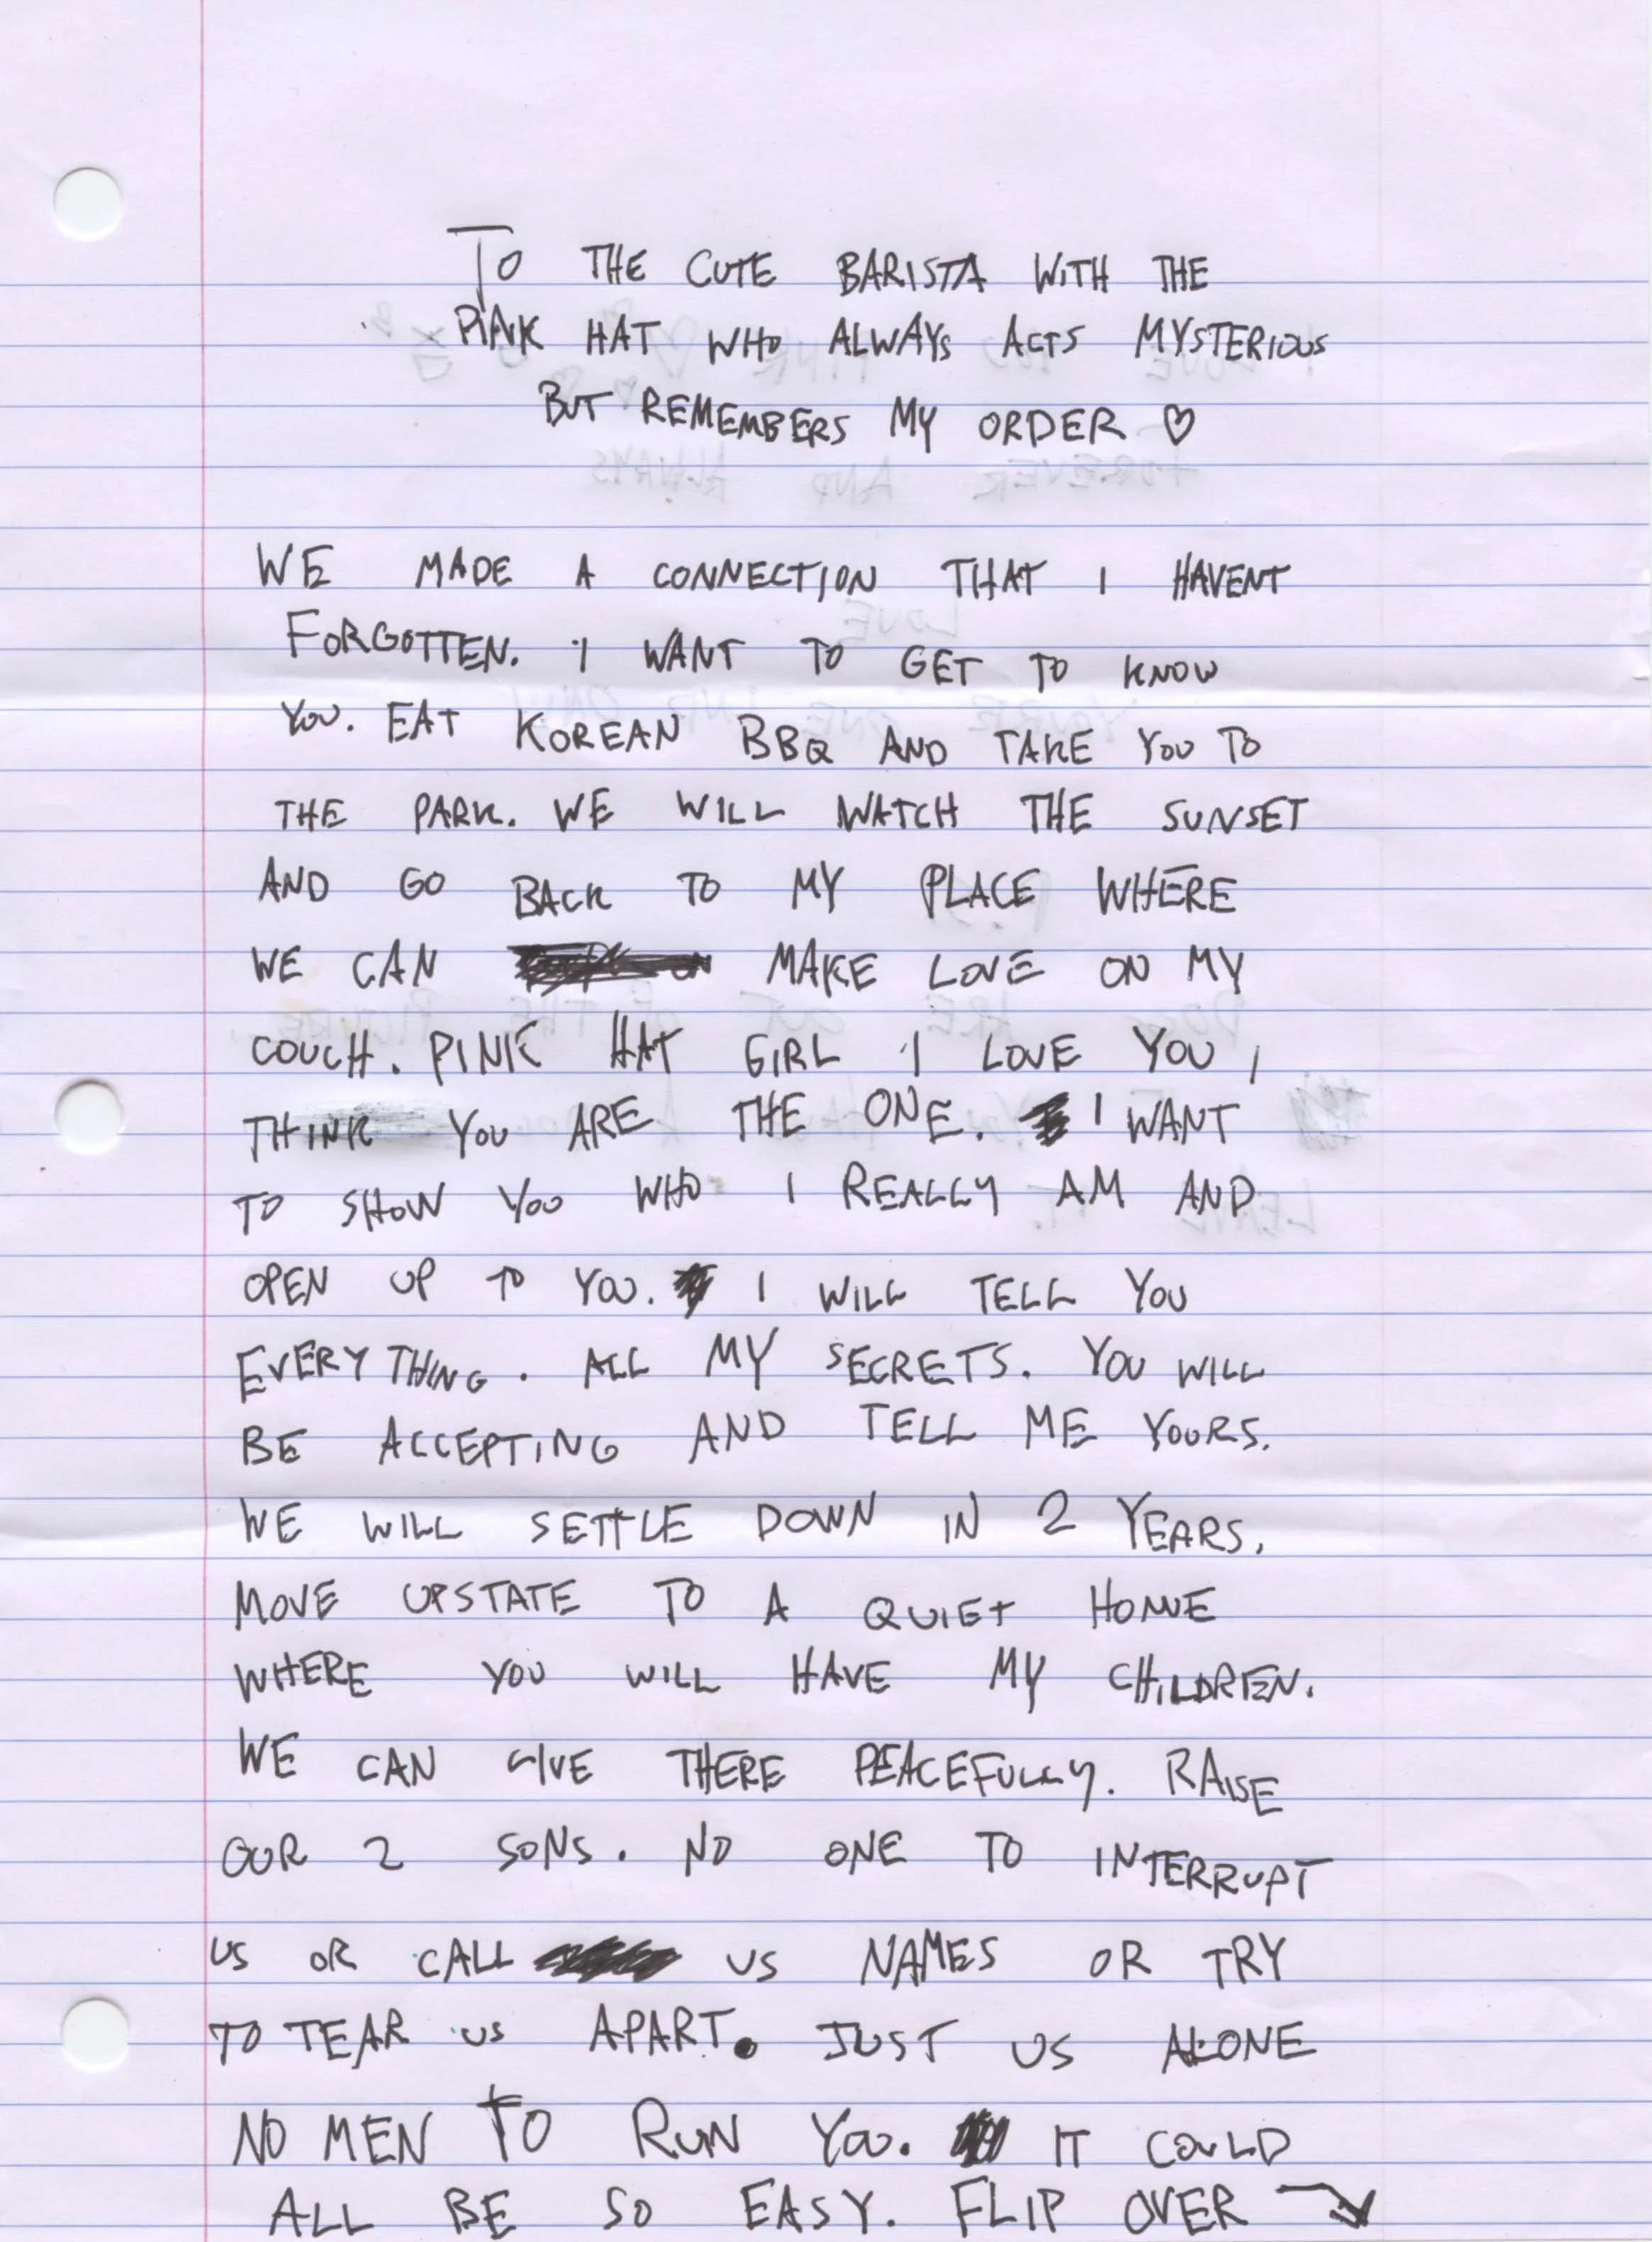 TO THE CUTE BARISTA WITH THE
PINK HAT WHO ALWAYS ACTS MYSTERIOUS
BUT REMEMBERS MY ORDER ♡
WE MADE A CONNECTION THAT I HAVENT
FORGOTTEN. I WANT TO GET TO KNOW
YOU. EAT KOREAN BBQ AND TAKE YOU TO
THE PARK. WE WILL WATCH THE SUNSET
AND GO BACK TO MY PLACE WHERE
WE CAN MAKE LOVE ON MY
COUCH. PINK HAT GIRL I LOVE YOU,
THINK YOU ARE THE ONE. I WANT
TO SHOW YOU WHO I REALLY AM AND
OPEN UP TO YOU. I WILL TELL YOU
EVERYTHING. ALL MY SECRETS. YOU WILL
BE ACCEPTING AND TELL ME YOURS.
WE WILL SETTLE DOWN IN 2 YEARS,
MOVE UPSTATE TO A QUIET HOME
WHERE YOU WILL HAVE MY CHILDREN.
WE CAN LIVE THERE PEACEFULLY. RAISE
OUR 2 SONS. NO ONE TO INTERRUPT
US OR CALL US NAMES OR TRY
TO TEAR US APART. JUST US ALONE
NO MEN TO RUIN YOU. IT COULD
ALL BE SO EASY. FLIP OVER